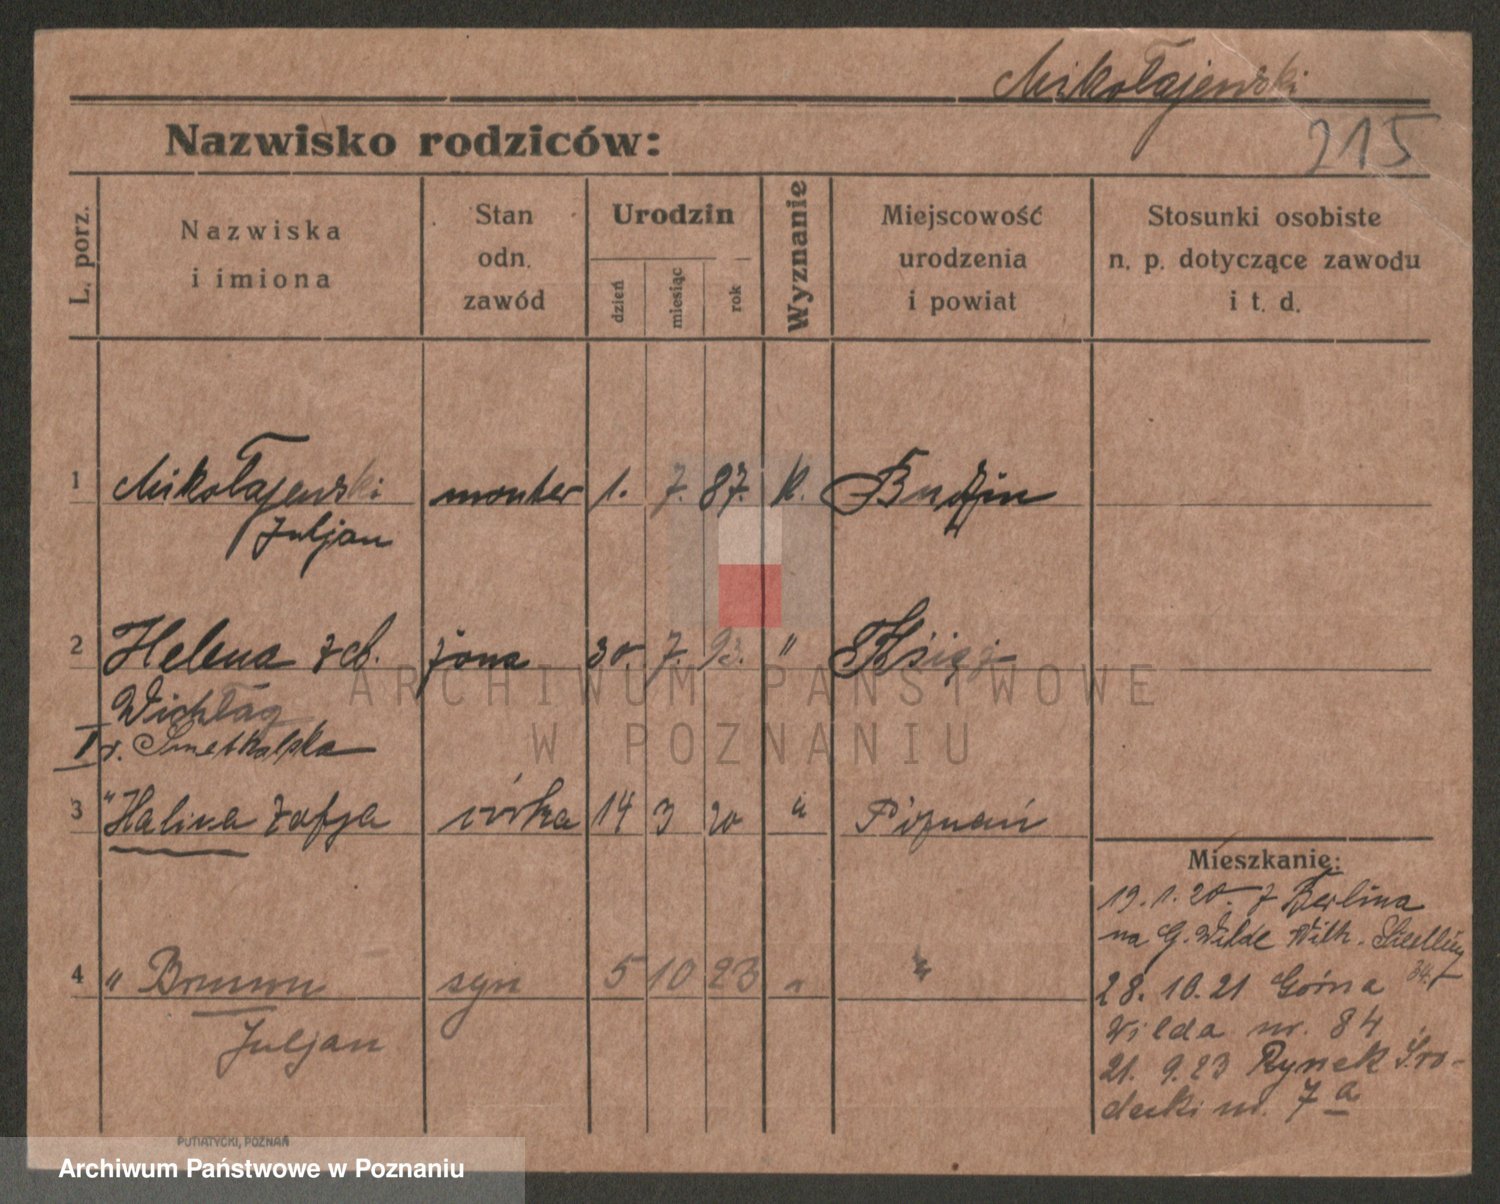 Mikołajewski
Nazwisko rodziców:
215
L. porz.
Nazwiska
i imiona
Stan
odn.
zawód
Urodzin
dzień
miesiąc
rok
Wyznanie
Miejscowość
urodzenia
i powiat
Stosunki osobiste
n. p. dotyczące zawodu
i t. d.
1 Mikołajewski monter 1. 7. 87. k. Budzin
Juljan
2 Helena z d. żona 30. 7. 93. " Książ
I v. Smetkalska
3 " Halina Zofja córka 14 3 20 " Poznań
Mieszkanie:
19.1.20. z Berlina
na G. Wilde Wilh.
4 " Brunon syn 5 10 23 "
Juljan
28.10.21 Górna
Wilda nr. 84
21. 9.23 Rynek Śro-
decki nr. 7a
ARCHIWUM PAŃSTWOWE
W POZNANIU
PUTIATYCKI, POZNAŃ
Archiwum Państwowe w Poznaniu